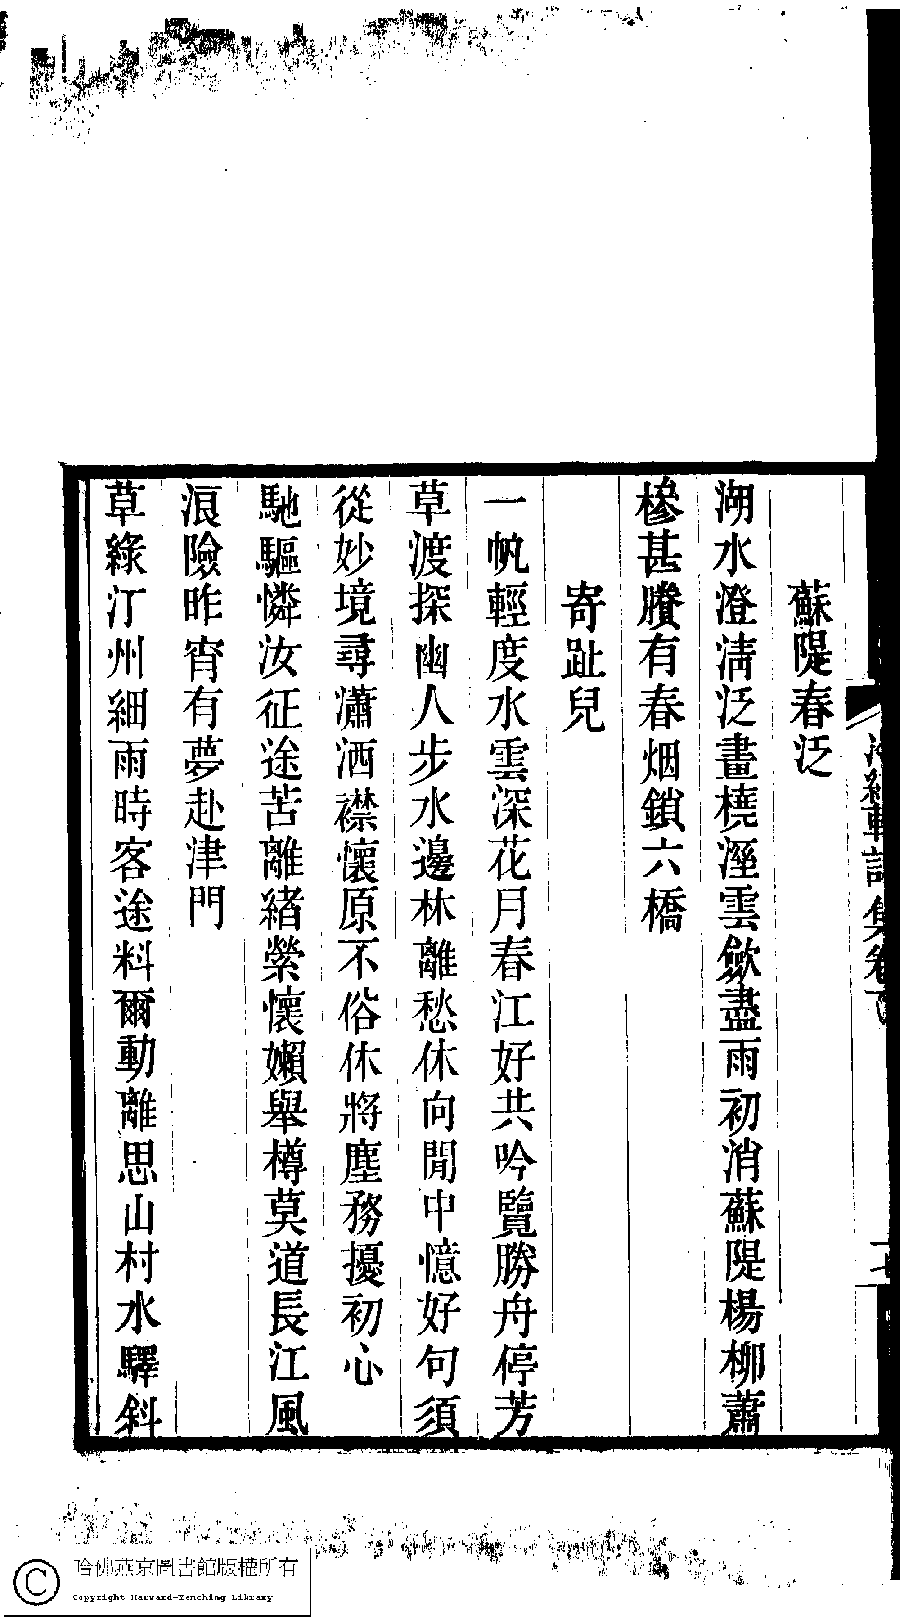 蘇隄春泛
湖水澄淸泛畫橈溼雲斂盡雨初消蘇隄楊柳蕭
槮甚賸有春烟鎖六橋
寄趾兒
一帆輕度水雲深花月春江好共吟覽勝舟停芳
草渡探幽人步水邊林離愁休向閒中憶好句須
從妙境尋瀟洒襟懷原不俗休將塵務擾初心
馳驅憐汝征途苦離緒縈懷嬾舉樽莫道長江風
浪險昨宵有夢赴津門
草綠汀州細雨時客途料爾動離思山村水驛斜
軒詩集卷
哈佛燕京圖書館版權所有
Copyright Harvard-Yenching Library